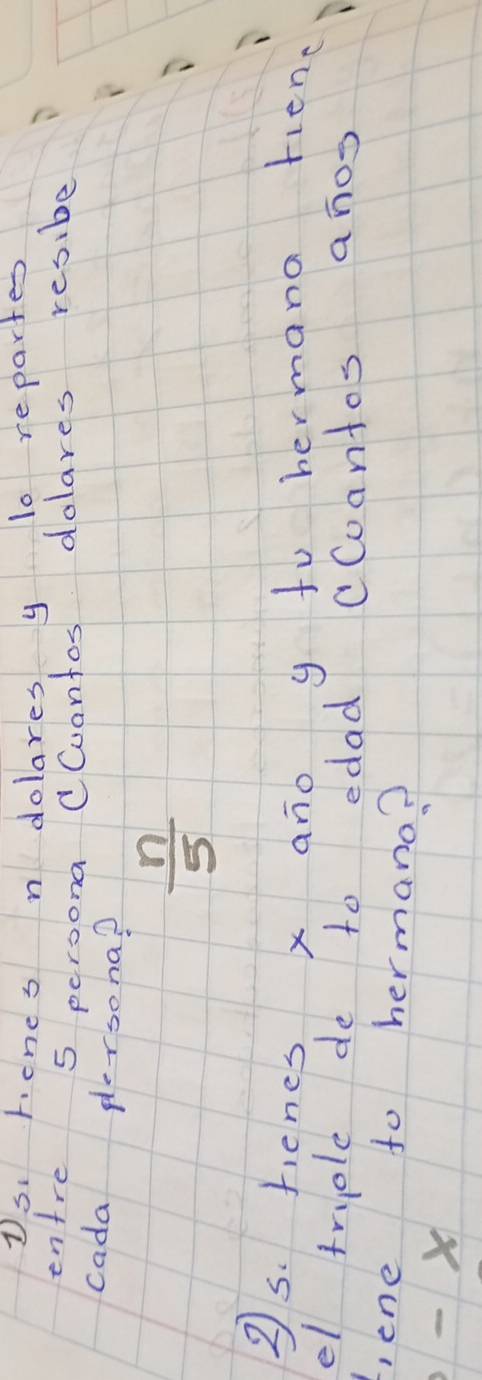 1) si tienes n dolares y lo repartes
entre 5 persona ¿Cuantos dolares resibe
cada persona?
n
5
2) si tienes x año y tu hermana tiene
el triple de tu edad ¿Cuantos años
tiene tu hermana?
- x